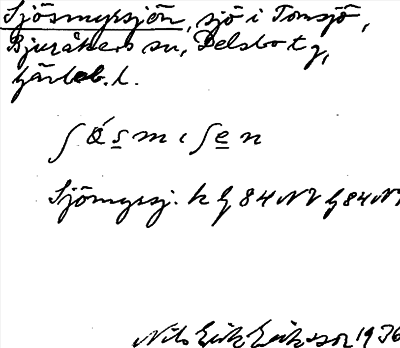 Sjösmyrsjön, sjö i Tomsjö,
Bjuråkers sn, Delsbo tg,
Gävleb. l.
ʃǿsmıʃen
Sjömyrsj. k G 84 NV G 84 NV
Nils Erik Eriksson 1936